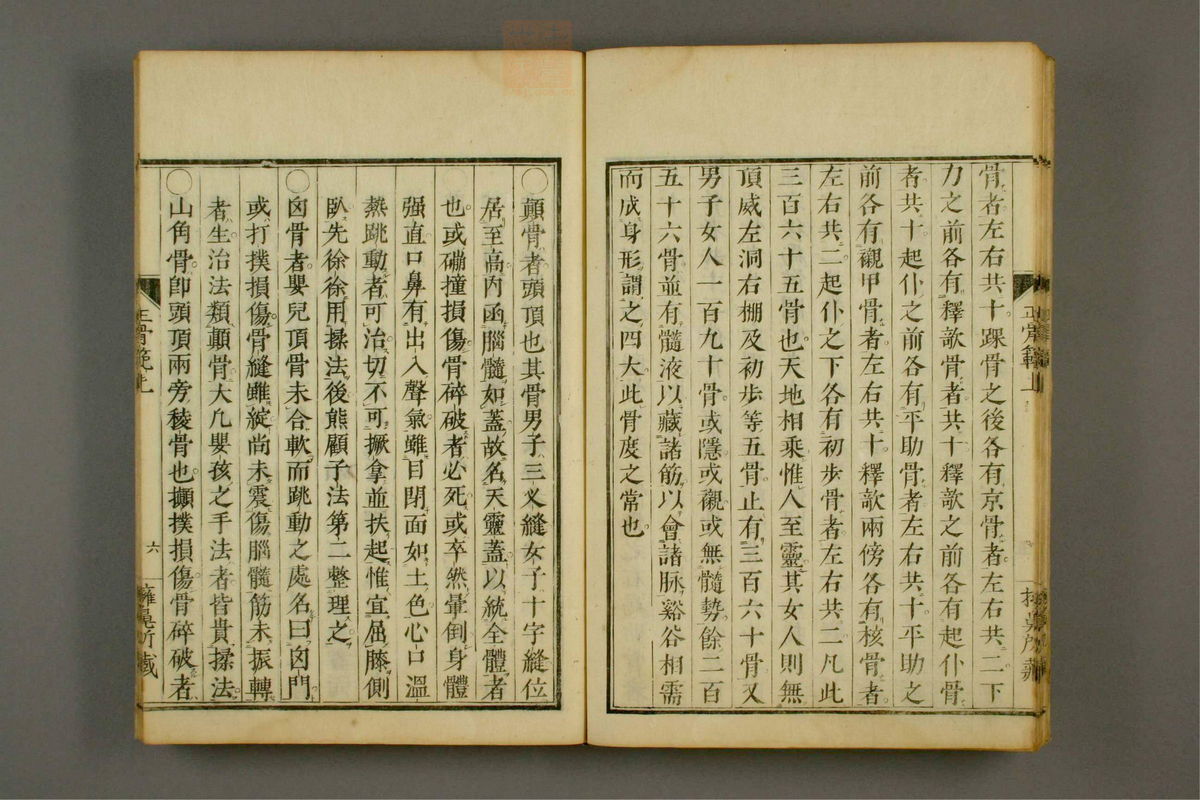 骨者左右共十踝骨之後各有京骨者左右共二下
力之前各有釋欹骨者共十釋欹之前各有起仆骨
者共十起仆之前各有平助骨者左右共十平助之
前各有襯甲骨者左右共十釋欹兩傍各有核骨者
左右共二起仆之下各有初步骨者左右共二凡此
三百六十五骨也天地相乘惟人至靈其女人則無
頂威左洞右棚及初步等五骨止有三百六十骨又
男子女人一百九十骨或隱或襯或無髓勢餘二百
五十六骨並有髓液以藏諸筋以會諸脉谿谷相需
而成身形謂之四大此骨度之常也
正骨範上
○顛骨者頭頂也其骨男子三叉縫女子十字縫位
居至高内函腦髓如蓋故名天靈蓋以統全體者
也或磞撞損傷骨碎破者必死或卒然暈倒身體
强直口鼻有出入聲氣雖目閉面如土色心口溫
熱跳動者可治切不可撅拿並扶起惟宜屈膝側
臥先徐徐用揉法後熊顧子法第二整理之
○囟骨者嬰兒頂骨未合軟而跳動之處名曰囟門
或打撲損傷骨縫雖綻尚未震傷腦髓筋未振轉
者生治法類顛骨大凡嬰孩之手法者皆貴揉法
○山角骨卽頭頂兩旁稜骨也擷撲損傷骨碎破者
正骨範上
六